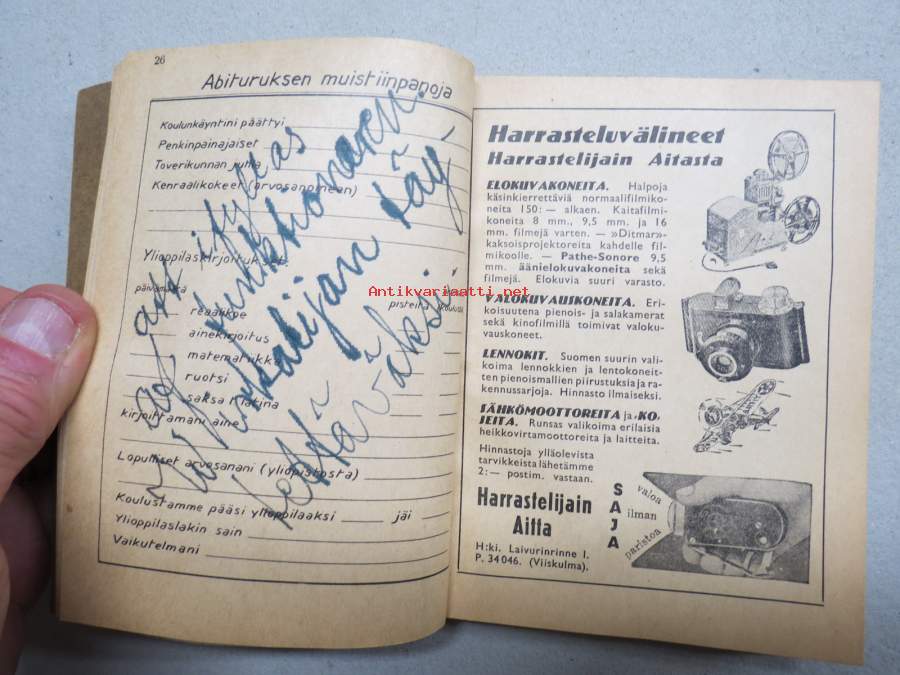 26
Abituruksen muistiinpanoja
Koulunkäyntini päättyi
Penkinpainajaiset
Toverikunnan juhla
Kenraalikokeet (arvosanoineen)
Ylioppilaskirjoitukset:
päivämäärä
pisteitä
reaalikoe
ainekirjoitus
matematiikka
ruotsi
saksa
latina
kirjoittamani aine
Lopulliset arvosanani (yliopistosta)
Koulustamme pääsi ylioppilaaksi jäi
Ylioppilaslakin sain
Vaikutelmani
funktionären.
lettäväksi.
Antikvariaatti.net
Harrasteluvälineet
Harrastelijain Aitasta
ELOKUVAKONEITA. Halpoja
käsinkierrettäviä normaalifilmiko-
neita 150:— alkaen. Kaitafilmi-
koneita 8 mm., 9,5 mm. ja 16
mm. filmejä varten. — »Ditmar»-
kaksoisprojektoreita kahdelle fil-
mikoolle. — Pathe-Sonore 9,5
mm. äänielokuvakoneita sekä
filmejä. Elokuvia suuri varasto.
VALOKUVAUSKONEITA. Eri-
koisuutena pienois- ja salakamerat
sekä kinofilmillä toimivat valoku-
vauskoneet.
LENNOKIT. Suomen suurin vali-
koima lennokkien ja lentokoneit-
ten pienoismallien piirustuksia ja ra-
kennussarjoja. Hinnasto ilmaiseksi.
SÄHKÖMOOTTOREITA ja -KO-
JEITA. Runsas valikoima erilaisia
heikkovirtamoottoreita ja laitteita.
Hinnastoja ylläolevista
tarvikkeista lähetämme
2:— postim. vastaan.
Harrastelijain
Aitta
H:ki. Laivurinrinne 1.
P. 34046. (Viiskulma).
SAJA
valoa
ilman
paristoa